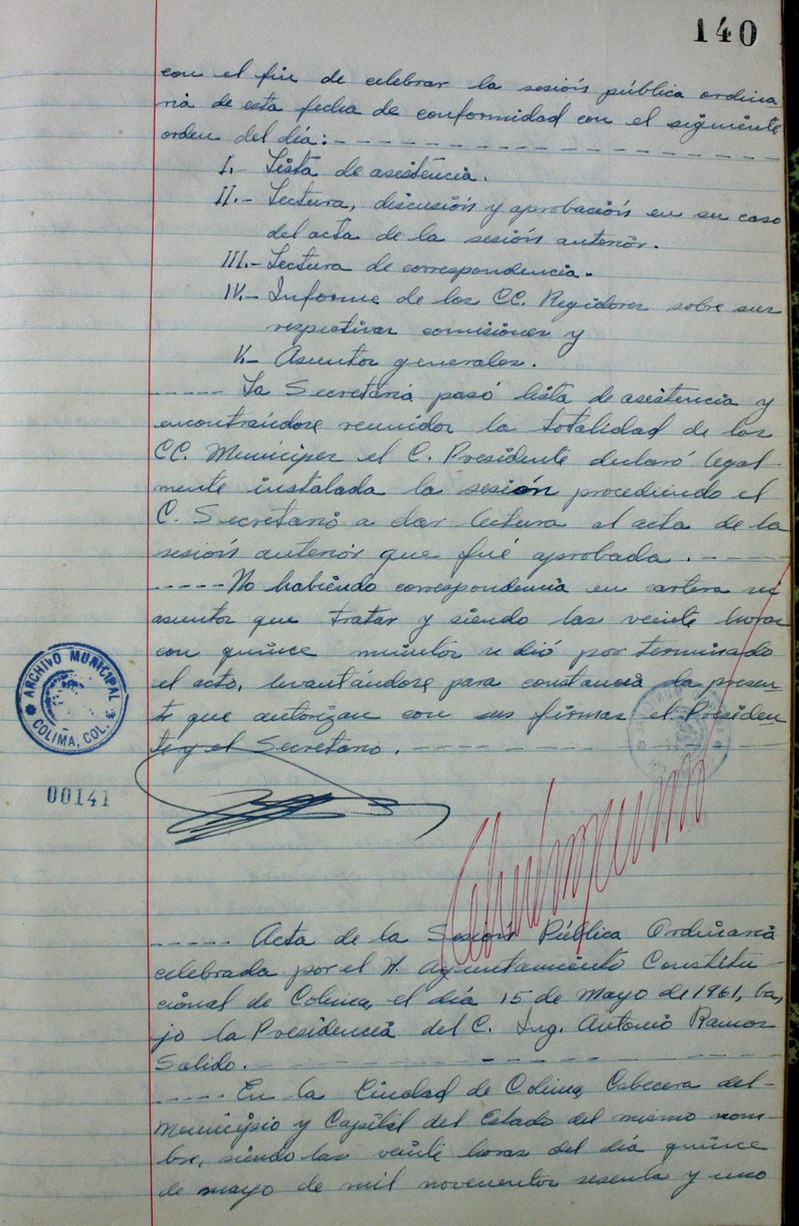 140
con el fin de celebrar la sesión pública ordina
ria de esta fecha de conformidad con el siguiente
orden del día:- - - - - - - - - - - - - - - -
I.- Lista de asistencia.
II.- Lectura, discusión y aprobación en su caso
del acta de la sesión anterior.
III.- Lectura de correspondencia.-
IV.- Informe de los CC. Regidores sobre sus
respectivas comisiones y
V.- Asuntos generales.
- - - - - La Secretaría pasó lista de asistencia y
encontrándose reunidos la totalidad de los
CC. Munícipes el C. Presidente declaró legal
mente instalada la sesión procediendo el
C. Secretario a dar lectura al acta de la
sesión anterior que fué aprobada. - - - -
- - - - - No habiendo correspondencia en cartera ni
asuntos que tratar y siendo las veinte horas
con quince minutos se dió por terminado
el acto, levantándose para constancia la presen
te que autorizan con sus firmas el Presiden
te y el Secretario. - - - - - - - - - - - - -
ARCHIVO MUNICIPAL
COLIMA, COL.
00141
- - - - - Acta de la Sesión Pública Ordinaria
celebrada por el H. Ayuntamiento Constitu-
cional de Colima, el día 15 de Mayo de 1961, ba,
jo la Presidencia del C. Ing. Antonio Ramos
Salido. - - - - - - - - - - - - - - - - - - -
- - - - - En la Ciudad de Colima, Cabecera del-
Municipio y Capital del Estado del mismo nom-
bre, siendo las veinte horas del día quince
de mayo de mil novecientos sesenta y uno